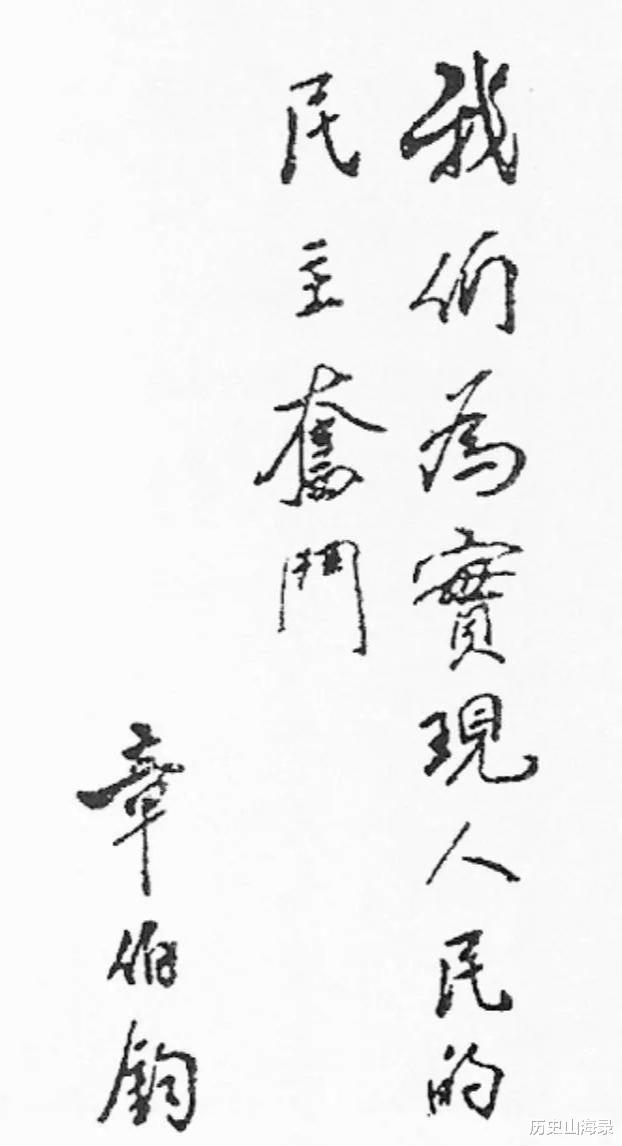 我们為實現人民的
民主奮鬥
章伯鈞
历史山海录